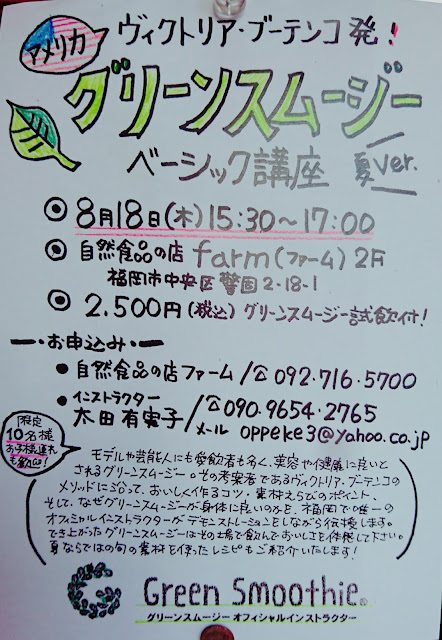 アメリカ
ヴィクトリア・ブーテンコ発!
グリーンスムージー
ベーシック講座 夏ver.
8月18日(木)15:30〜17:00
自然食品の店 farm(ファーム)2F
福岡市中央区警固2-18-1
2.500円(税込)グリーンスムージー試飲付!
お申込み
・自然食品の店ファーム/☎092・716・5700
・インストラクター
太田 有実子/☎090.9654.2765
メール oppeke3@yahoo.co.jp
限定
10名様
お子様連れ
も歓迎!
モデルや芸能人にも愛飲者も多く、美容や健康に良いと
されるグリーンスムージー。その考案者であるヴィクトリア・ブーテンコの
メソッドに沿って、おいしく作るコツ・素材えらびのポイント、
そして、なぜグリーンスムージーが身体に良いのかを、福岡で唯一の
オフィシャルインストラクターがデモンストレーションをしながら伝授します。
でき上がったグリーンスムージーはその場で飲んでおいしさを体感して下さい。
夏ならではの旬の素材を使ったレシピもご紹介いたします!
Green Smoothie®
グリーンスムージー オフィシャルインストラクター